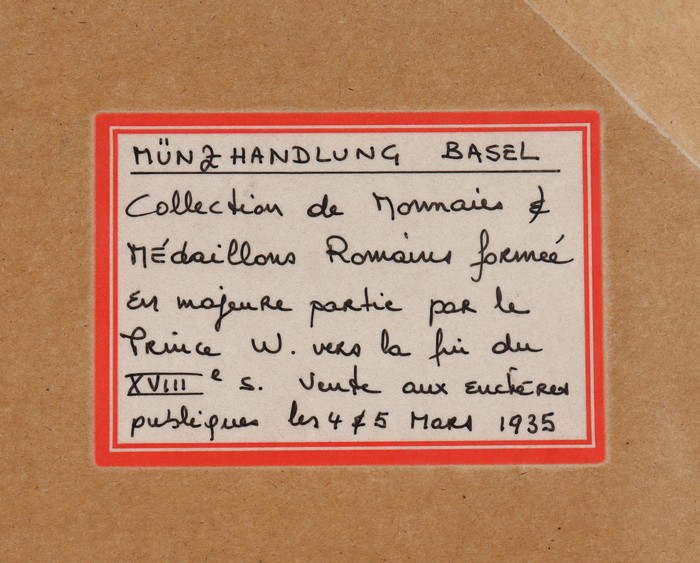 MÜNZHANDLUNG BASEL
Collection de Monnaies &
Médaillons Romains formée
en majeure partie par le
Prince W. vers la fin du
XVIIIe s. Vente aux enchères
publiques les 4 & 5 Mars 1935